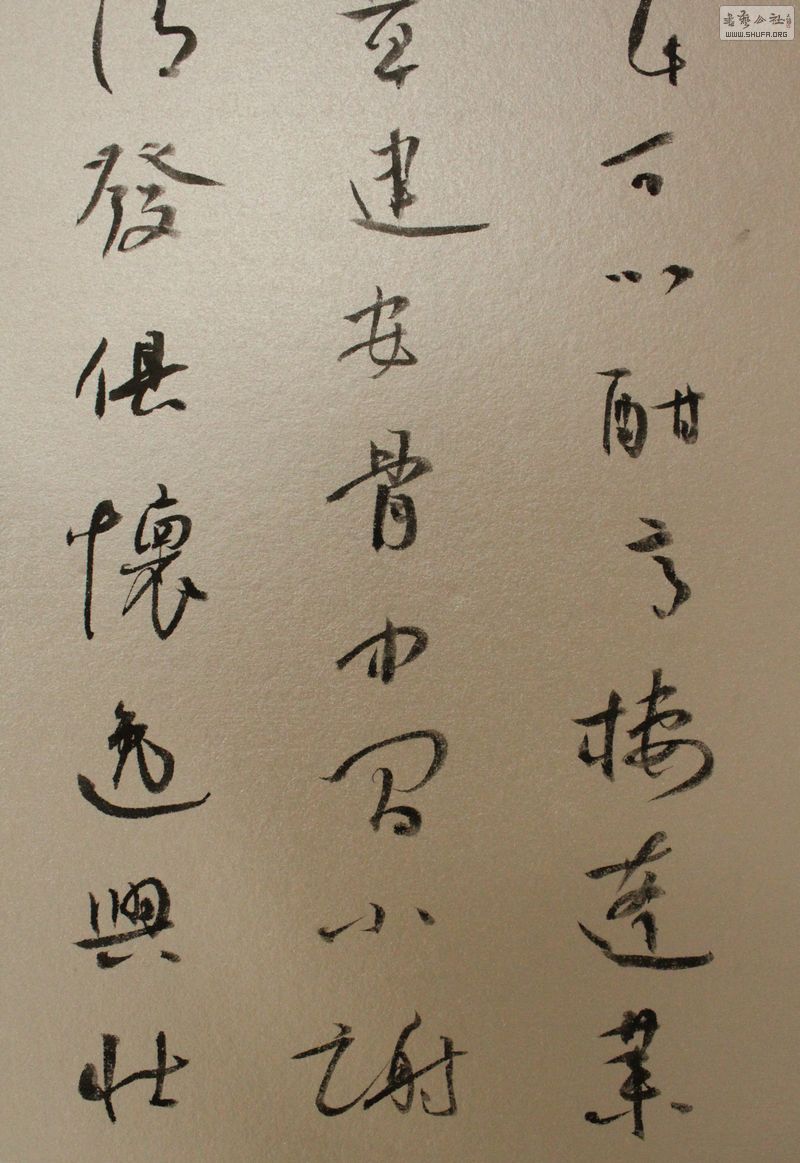 此可以酣高樓蓬萊
章建安骨中間小謝
清發俱懷逸興壯
书艺公社
WWW.SHUFA.ORG